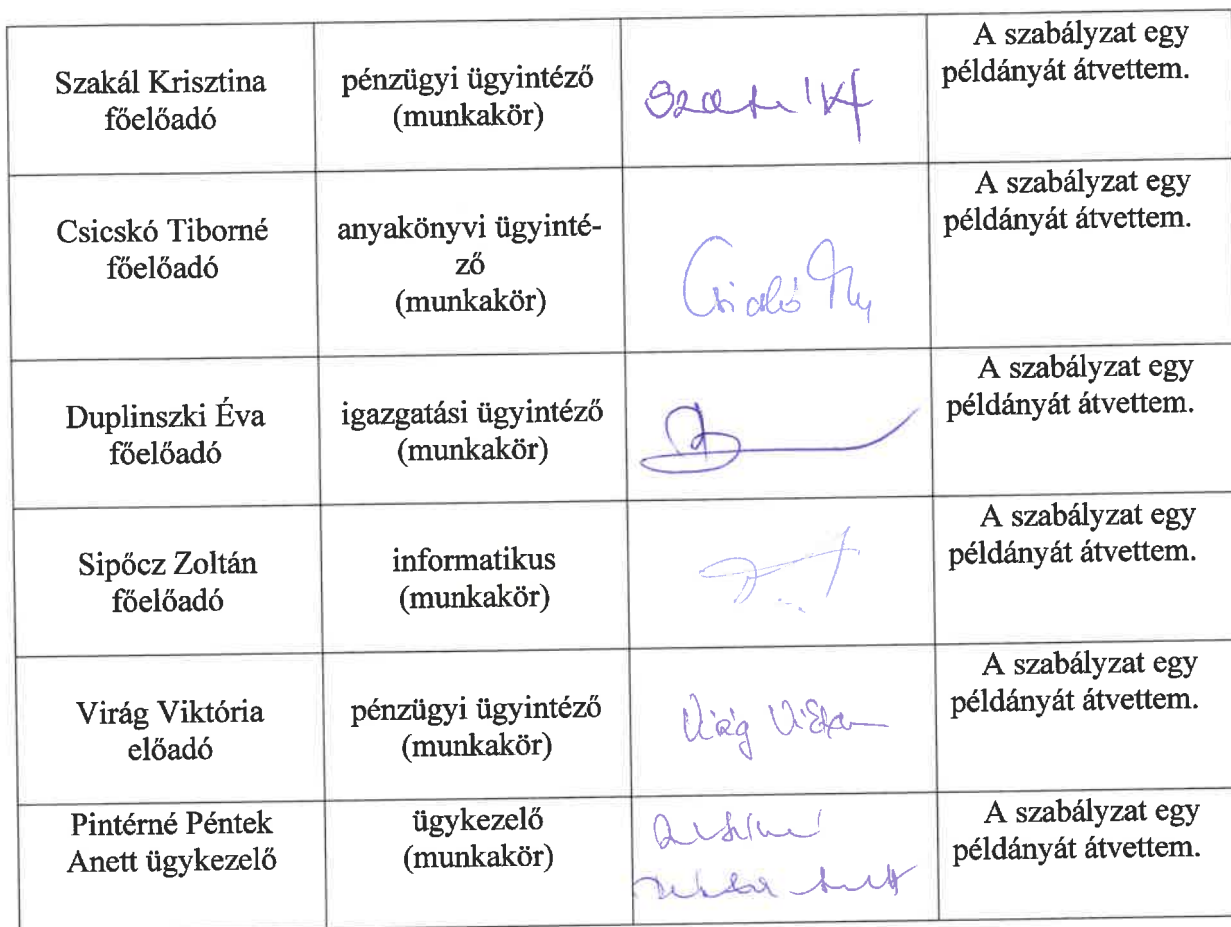 Szakál Krisztina
főelőadó
pénzügyi ügyintéző
(munkakör)
A szabályzat egy
példányát átvettem.
Csicskó Tiborné
főelőadó
anyakönyvi ügyinté-
ző
(munkakör)
A szabályzat egy
példányát átvettem.
Duplinszki Éva
főelőadó
igazgatási ügyintéző
(munkakör)
A szabályzat egy
példányát átvettem.
Sipőcz Zoltán
főelőadó
informatikus
(munkakör)
A szabályzat egy
példányát átvettem.
Virág Viktória
előadó
pénzügyi ügyintéző
(munkakör)
Virág
A szabályzat egy
példányát átvettem.
Pintérné Péntek
Anett ügykezelő
ügykezelő
(munkakör)
A szabályzat egy
példányát átvettem.